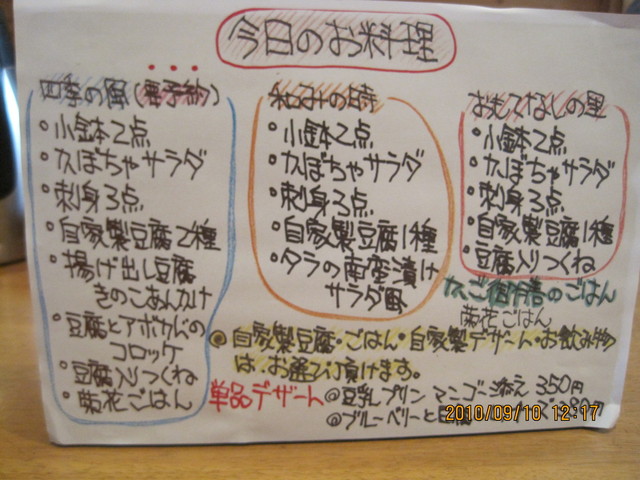 今日のお料理
四季の風(要予約)
・小鉢2点
・かぼちゃサラダ
・刺身3点
・自家製豆腐2種
・揚げ出し豆腐
きのこあんかけ
・豆腐とアボカドの
コロッケ
・豆腐入りつくね
・菊花ごはん
和みの時
・小鉢2点
・かぼちゃサラダ
・刺身3点
・自家製豆腐1種
・タラの南蛮漬け
サラダ風
おもてなしの里
・小鉢2点
・かぼちゃサラダ
・刺身3点
・自家製豆腐1種
・豆腐入りつくね
御膳のごはん
菊花ごはん
◎自家製豆腐・ごはん・自家製デザート・お飲み物
は、お選び頂けます。
単品デザート
◎豆乳プリン マンゴー添え 350円
◎ブルーベリーと
2010/09/10 12:17